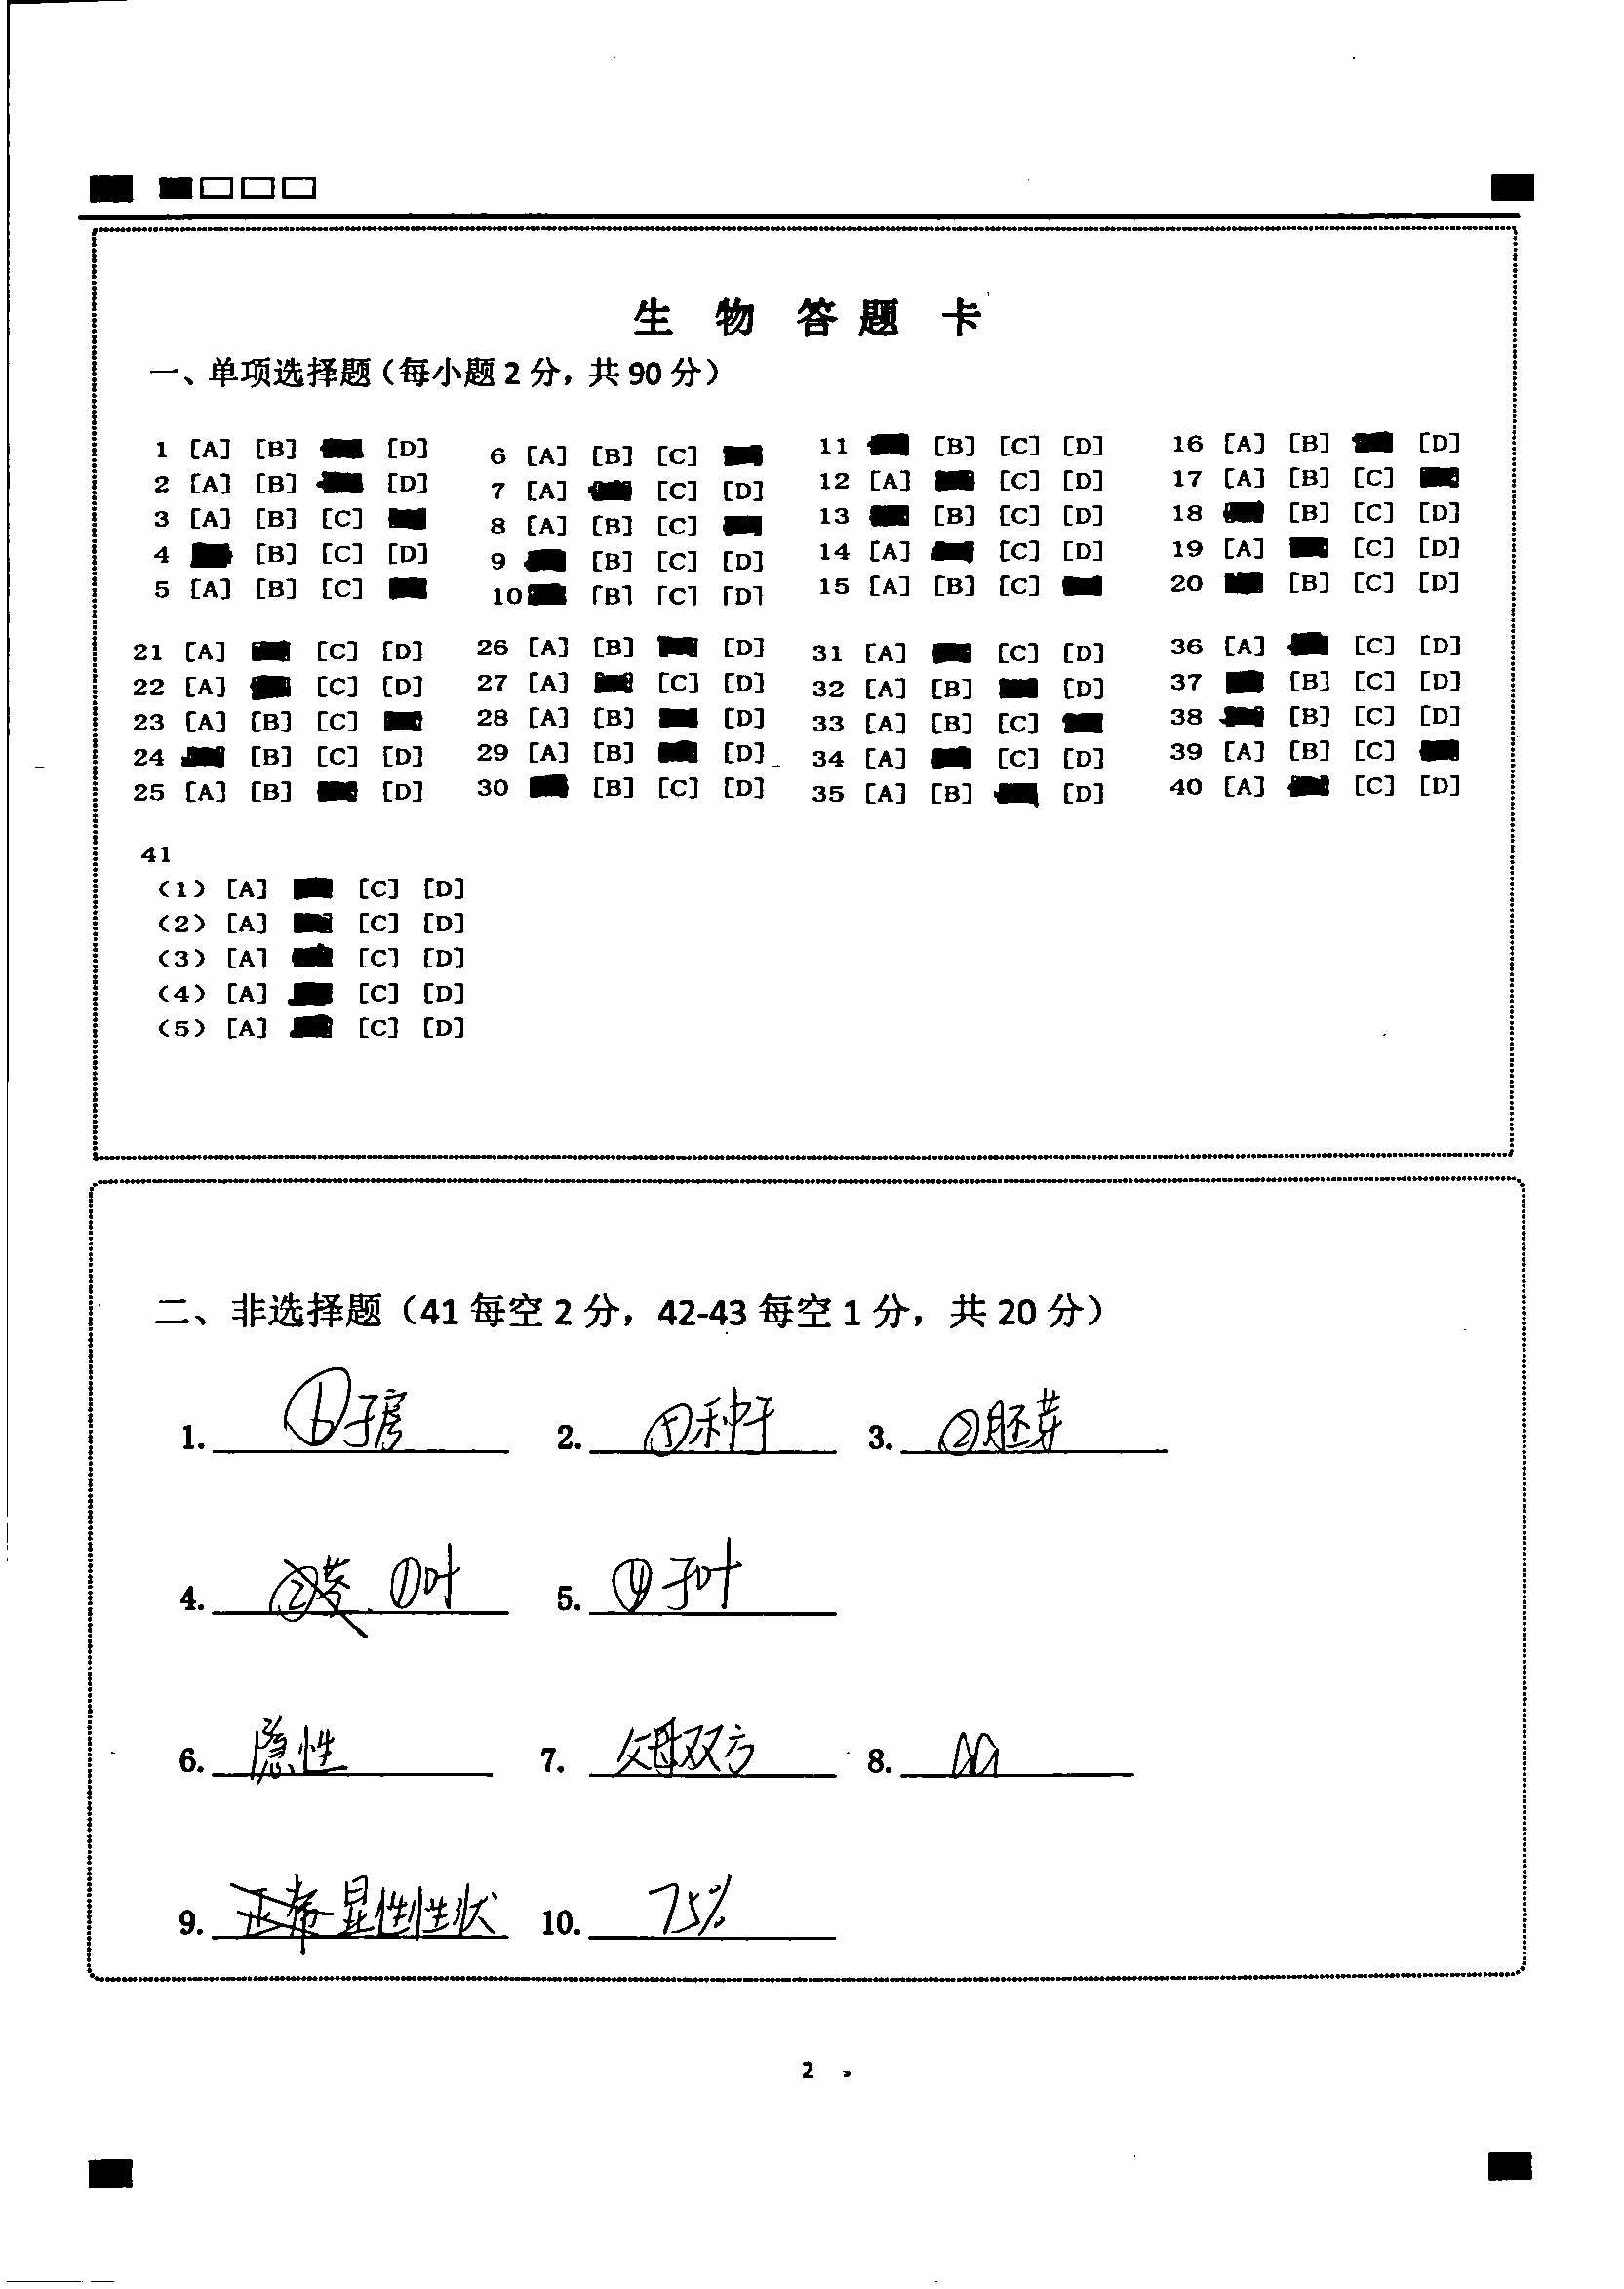 生 物 答 题 卡
一、单项选择题（每小题 2 分，共 90 分）
1 [A] [B] [D]
2 [A] [B] [D]
3 [A] [B] [C]
4 [B] [C] [D]
5 [A] [B] [C]
6 [A] [B] [C]
7 [A] [C] [D]
8 [A] [B] [C]
9 [B] [C] [D]
10 [B] [C] [D]
11 [B] [C] [D]
12 [A] [C] [D]
13 [B] [C] [D]
14 [A] [C] [D]
15 [A] [B] [C]
16 [A] [B] [D]
17 [A] [B] [C]
18 [B] [C] [D]
19 [A] [C] [D]
20 [B] [C] [D]
21 [A] [C] [D]
22 [A] [C] [D]
23 [A] [B] [C]
24 [B] [C] [D]
25 [A] [B] [D]
26 [A] [B] [D]
27 [A] [C] [D]
28 [A] [B] [D]
29 [A] [B] [D]
30 [B] [C] [D]
31 [A] [C] [D]
32 [A] [B] [D]
33 [A] [B] [C]
34 [A] [C] [D]
35 [A] [B] [D]
36 [A] [C] [D]
37 [B] [C] [D]
38 [B] [C] [D]
39 [A] [B] [C]
40 [A] [C] [D]
41
(1) [A] [C] [D]
(2) [A] [C] [D]
(3) [A] [C] [D]
(4) [A] [C] [D]
(5) [A] [C] [D]
二、非选择题（41 每空 2 分，42-43 每空 1 分，共 20 分）
1. ⑥子房 2. ⑤种子 3. ②胚芽
4. ①叶 5. ④子叶
6. 隐性 7. 父母双方 8. aa
9. 正常 显性性状 10. 75%
2